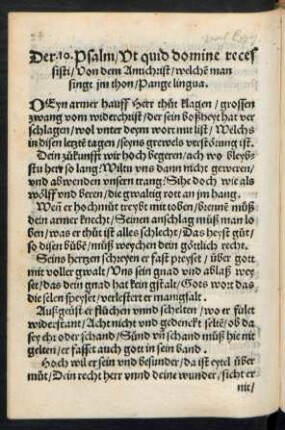 Der .10. Psalm / Ut quid domine reces
sisti / Von dem Antichrist / welchē man
singt jm thon / Pange lingua.
DEyn armer hauff Herr thůt klagen / grossen
zwang vom widerchrist / der sein boßheyt hat ver
schlagen / wol unter deym wort mit list / Welchs
in disen letzte tagen / seyns grewels verstörung ist.
Dein zůkunfft wir hoch begeren / ach wo bleybs
stu herr so lang / Wilts du uns deinn trutz geweren /
und abwenden unsern trang / Sihe doch wie als
wölff und beren / die gwaltig rott an jm hang.
Weil er hochmůt treybt mit toben / brennt můß
dein armer knecht / Seinen anschlag můß man lo
ben / was er thůt ist alles schlecht / Das heyst gůt /
so disen bübē / můß weychen dein götlich recht.
Seins hertzen schreyen er fast preyset / über gott
mit voller gwalt / Uns sein gnad und ablaß wey
set / das dein gnad hat kein gstalt / Gots wort das
die selen speyset / verlestert er manigfalt.
Außgeüst er flüchen unnd schelten / wo er fület
widerstant / Acht nicht und gedenckt seltē / ob da
sey ehr oder schand / Sünd vn̄ schand müß hie mit
gelten / er fasset auch gott in sein band.
Hoch wil er sein und besunder / da ist eytel über
můt / Dein recht herr unnd deine wunder / sicht er
nit /